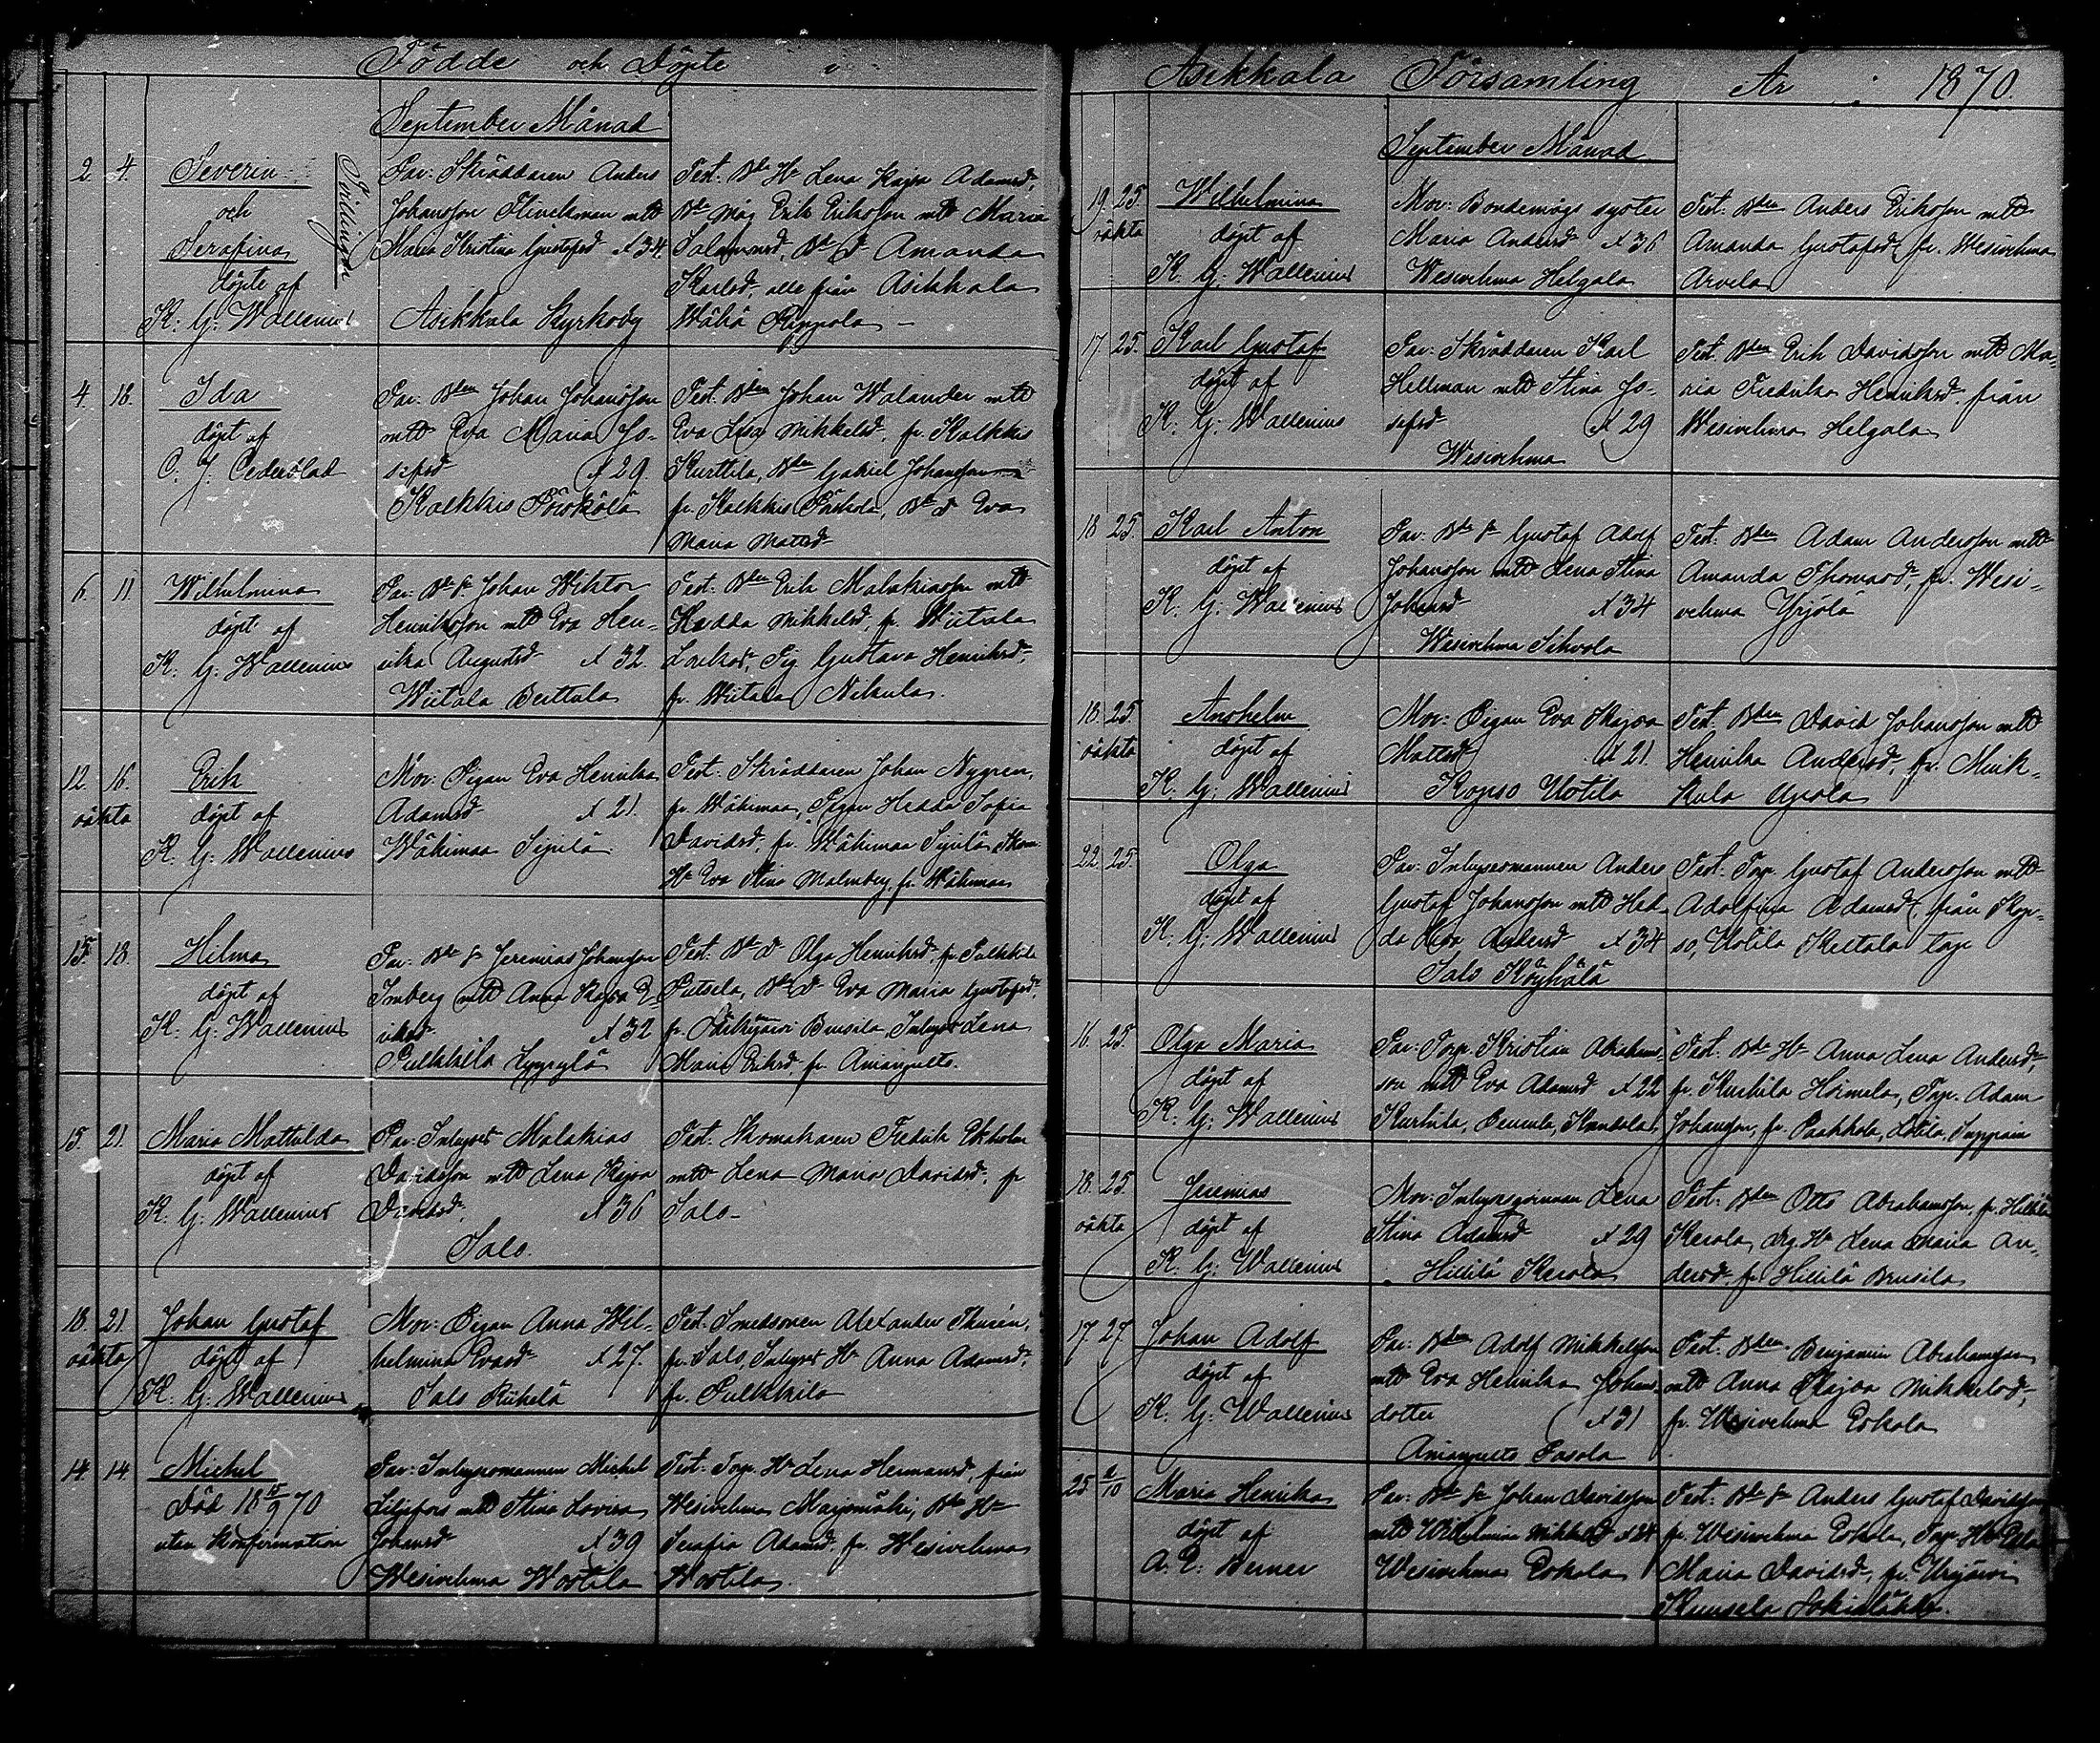 Födde och Döpte i
September Månad
2. 4. Severin
och
Serafina
döpte af
K: G: Wallenius
Tvillingar
Par: Skräddaren Anders
Johansson Flinckman mtt
Maria Kristina Gustafsd. Å 34.
Asikkala Kyrkoby
Test: Bde Hu Lena Kajsa Adamsd,
Bde Måg Erik Eriksson mtt Maria
Salomonsd, Bd D Amanda
Karlsd, alla från Asikkala
Wähä Rippola –
4. 18. Ida
döpt af
C. J. Cederblad
Par: Bden Johan Johansson
mtt Eva Maria Jo-
sefsd Å 29.
Kalkkis Pörkölä
Test: Bden Johan Walander mtt
Eva Lisa Mikkelsd. fr. Kalkkis
Kurttila, Bden Gabriel Johansson
fr. Kalkkis, Bd D Eva
Maria Mattsd
6. 11. Wilhelmina
döpt af
K: G: Wallenius
Par: Bde S. Johan Wiktor
Henriksson mtt Eva Hen-
rika Augustsd Å 32.
Wiitala Berttula
Test: Bden Erik Malakiasson mtt
Hedda Mikkelsd, fr. Wiitala
Pig Gustava Henriksd,
fr. Wiitala Nikula.
12. 16. Erik
oäkta döpt af
K: G: Wallenius
Mor: Pigan Eva Henrika
Adamsd Å 21.
Wähimaa Sipilä
Test: Skräddaren Johan Nygren,
fr. Wähimaa, Pigan Hedda Sofia
Davidsd, fr. Wähimaa Sipilä, Skom.
Hu Eva Stina Malmberg, fr. Wähimaa
15. 18. Hilma
döpt af
K: G: Wallenius
Par: Bde S. Jeremias Johansson
Imberg mtt Anna Kajsa E-
riksd Å 32
Pulkkila Lyyrylä
Test: Bd D Olga Henriksd. fr. Pulkkila
Putsela, Bd D Eva Maria Gustafsd,
fr. Särkijärvi Brusila Inhyses Lena
Maria Eriksd. fr. Anianpelto.
15. 21. Maria Mathilda
döpt af
K: G: Wallenius
Par: Inhyses Malakias
Davidsson mtt Lena Kajsa
Davidsd. Å 36
Salo.
Test: Skomakaren Fredrik Ekholm
mtt Lena Maria Davidsd. fr
Salo –
18. 21. Johan Gustaf
oäkta döpt af
K: G: Wallenius
Mor: Pigan Anna Wil-
helmina Evasd Å 27.
Salo Riihelä
Test: Smedsonen Alexander Thurén,
fr. Salo, Inhyses Hu Anna Adamsd,
fr. Pulkkila
14. 14. Michel
Död 18 15/9 70
utan konfirmation
Par: Inhysesmannen Michel
Liljefors mtt Stina Lovisa
Johansd Å 39
Wesivehmaa Wostila
Test: Torp. Hu Lena Hermansd, från
Wesivehmaa Marjomäki, Bde Hu
Serafia Adamsd. fr. Wesivehmaa
Wostila.
Asikkala Församling År 1870.
September Månad
19. 25. Wilhelmina
oäkta döpt af
K: G: Wallenius
Mor: Bondemågs syster
Maria Andersd Å 36
Wesivehmaa Helgala
Test: Bden Anders Eriksson mtt
Amanda Gustafsd, fr. Wesivehmaa
Arvela
17. 25. Karl Gustaf
döpt af
K: G: Wallenius
Par: Skräddaren Karl
Hellman mtt Stina Jo-
sefsd Å 29
Wesivehmaa
Test: Bden Erik Davidsson mtt Ma-
ria Fredrika Henriksd. från
Wesivehmaa Helgala
18 25. Karl Anton
döpt af
K: G: Wallenius
Par: Bde S. Gustaf Adolf
Johansson mtt Lena Stina
Johansd Å 34
Wesivehmaa Sihvola
Test: Bden Adam Andersson mtt
Amanda Thomasd, fr. Wesi-
vehmaa Yrjölä
18. 25. Anshelm
oäkta döpt af
K: G: Wallenius
Mor: Pigan Eva Kajsa
Mattsd Å 21.
Kopso Uotila
Test: Bden David Johansson mtt
Henrika Andersd, fr. Muik-
kula Ujola
22. 25. Olga
döpt af
K: G: Wallenius
Par: Inhysesmannen Anders
Gustaf Johansson mtt Hed-
da Lisa Andersd Å 34
Salo Köyhälä
Test: Torp. Gustaf Andersson mtt
Adolfina Adamsd, från Kop-
so, Uotila Kiettala torp
16. 25. Olga Maria
döpt af
K: G: Wallenius
Par: Torp. Kristian Abrahams-
son mtt Eva Adamsd Å 22
Kurhila,
Test: Bde Hu Anna Lena Andersd,
fr. Kurhila Heimela, Torp. Adam
Johansson, fr. Paakkola,
18. 25. Jeremias
oäkta döpt af
K: G: Wallenius
Mor: Inhysesqvinnan Lena
Stina Adamsd Å 29
Hillilä Kerola
Test: Bden Otto Abrahamsson, fr. Hillilä
Kerola, Drg. Hu Lena Maria An-
dersd. fr. Hillilä Brusila
17. 27. Johan Adolf
döpt af
K: G: Wallenius
Par: Bden Adolf Mikkelsson
mtt Eva Henrika Johans-
dotter Å 31
Anianpelto Pasola
Test: Bden Benjamin Abrahamsson
mtt Anna Kajsa Mikkelsd,
fr. Wesivehmaa Eskola
25 2/10 Maria Henrika
döpt af
A: E: Berner
Par: Bde S. Johan Davidsson
mtt Wilhelmina Mikkelsd Å 24
Wesivehmaa Eskola
Test: Bde S. Anders Gustaf Davidsson
fr. Wesivehmaa Eskola, Torp. Hu Eva
Maria Davidsd, fr. Urajärvi